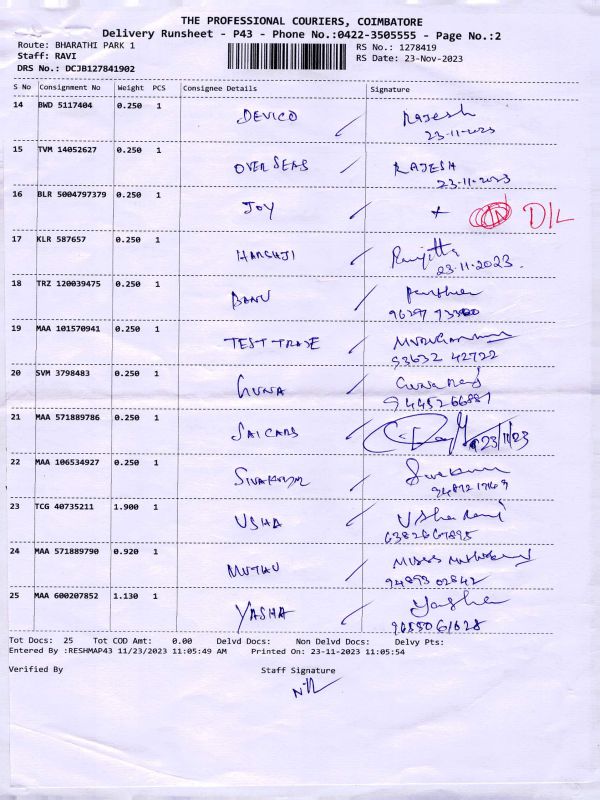 THE PROFESSIONAL COURIERS, COIMBATORE
Delivery Runsheet - P43 - Phone No.:0422-3505555 - Page No.:2
Route: BHARATHI PARK 1 RS No.: 1278419
Staff: RAVI RS Date: 23-Nov-2023
DRS No.: DCJB127841902
S No Consignment No Weight PCS Consignee Details Signature
14 BWD 5117404 0.250 1 DEVICO Rajesh
23-11-2023
15 TVM 14052627 0.250 1 OVERSEAS RAJESH
23-11-2023
16 BLR 5004797379 0.250 1 JOY D/L
17 KLR 587657 0.250 1 HARSHJI Ranjitha
23.11.2023.
18 TRZ 120039475 0.250 1 BANU
19 MAA 101570941 0.250 1 TEST TRADE
93632 42722
20 SVM 3798483 0.250 1 GUNA Guna
21 MAA 571889786 0.250 1 SAICARS
23/11/23
22 MAA 106534927 0.250 1 SIVAKUMAR Sivakumar
23 TCG 40735211 1.900 1 USHA Usha Rani
24 MAA 571889790 0.920 1 MUTHU
94893 02842
25 MAA 600207852 1.130 1 YASHA Yasha
Tot Docs: 25 Tot COD Amt: 0.00 Delvd Docs: Non Delvd Docs: Delvy Pts:
Entered By :RESHMAP43 11/23/2023 11:05:49 AM Printed On: 23-11-2023 11:05:54
Verified By Staff Signature